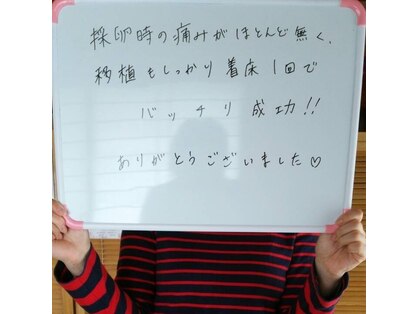 採卵時の痛みがほとんど無く、
移植もしっかり着床1回で
バッチリ成功!!
ありがとうございました♡